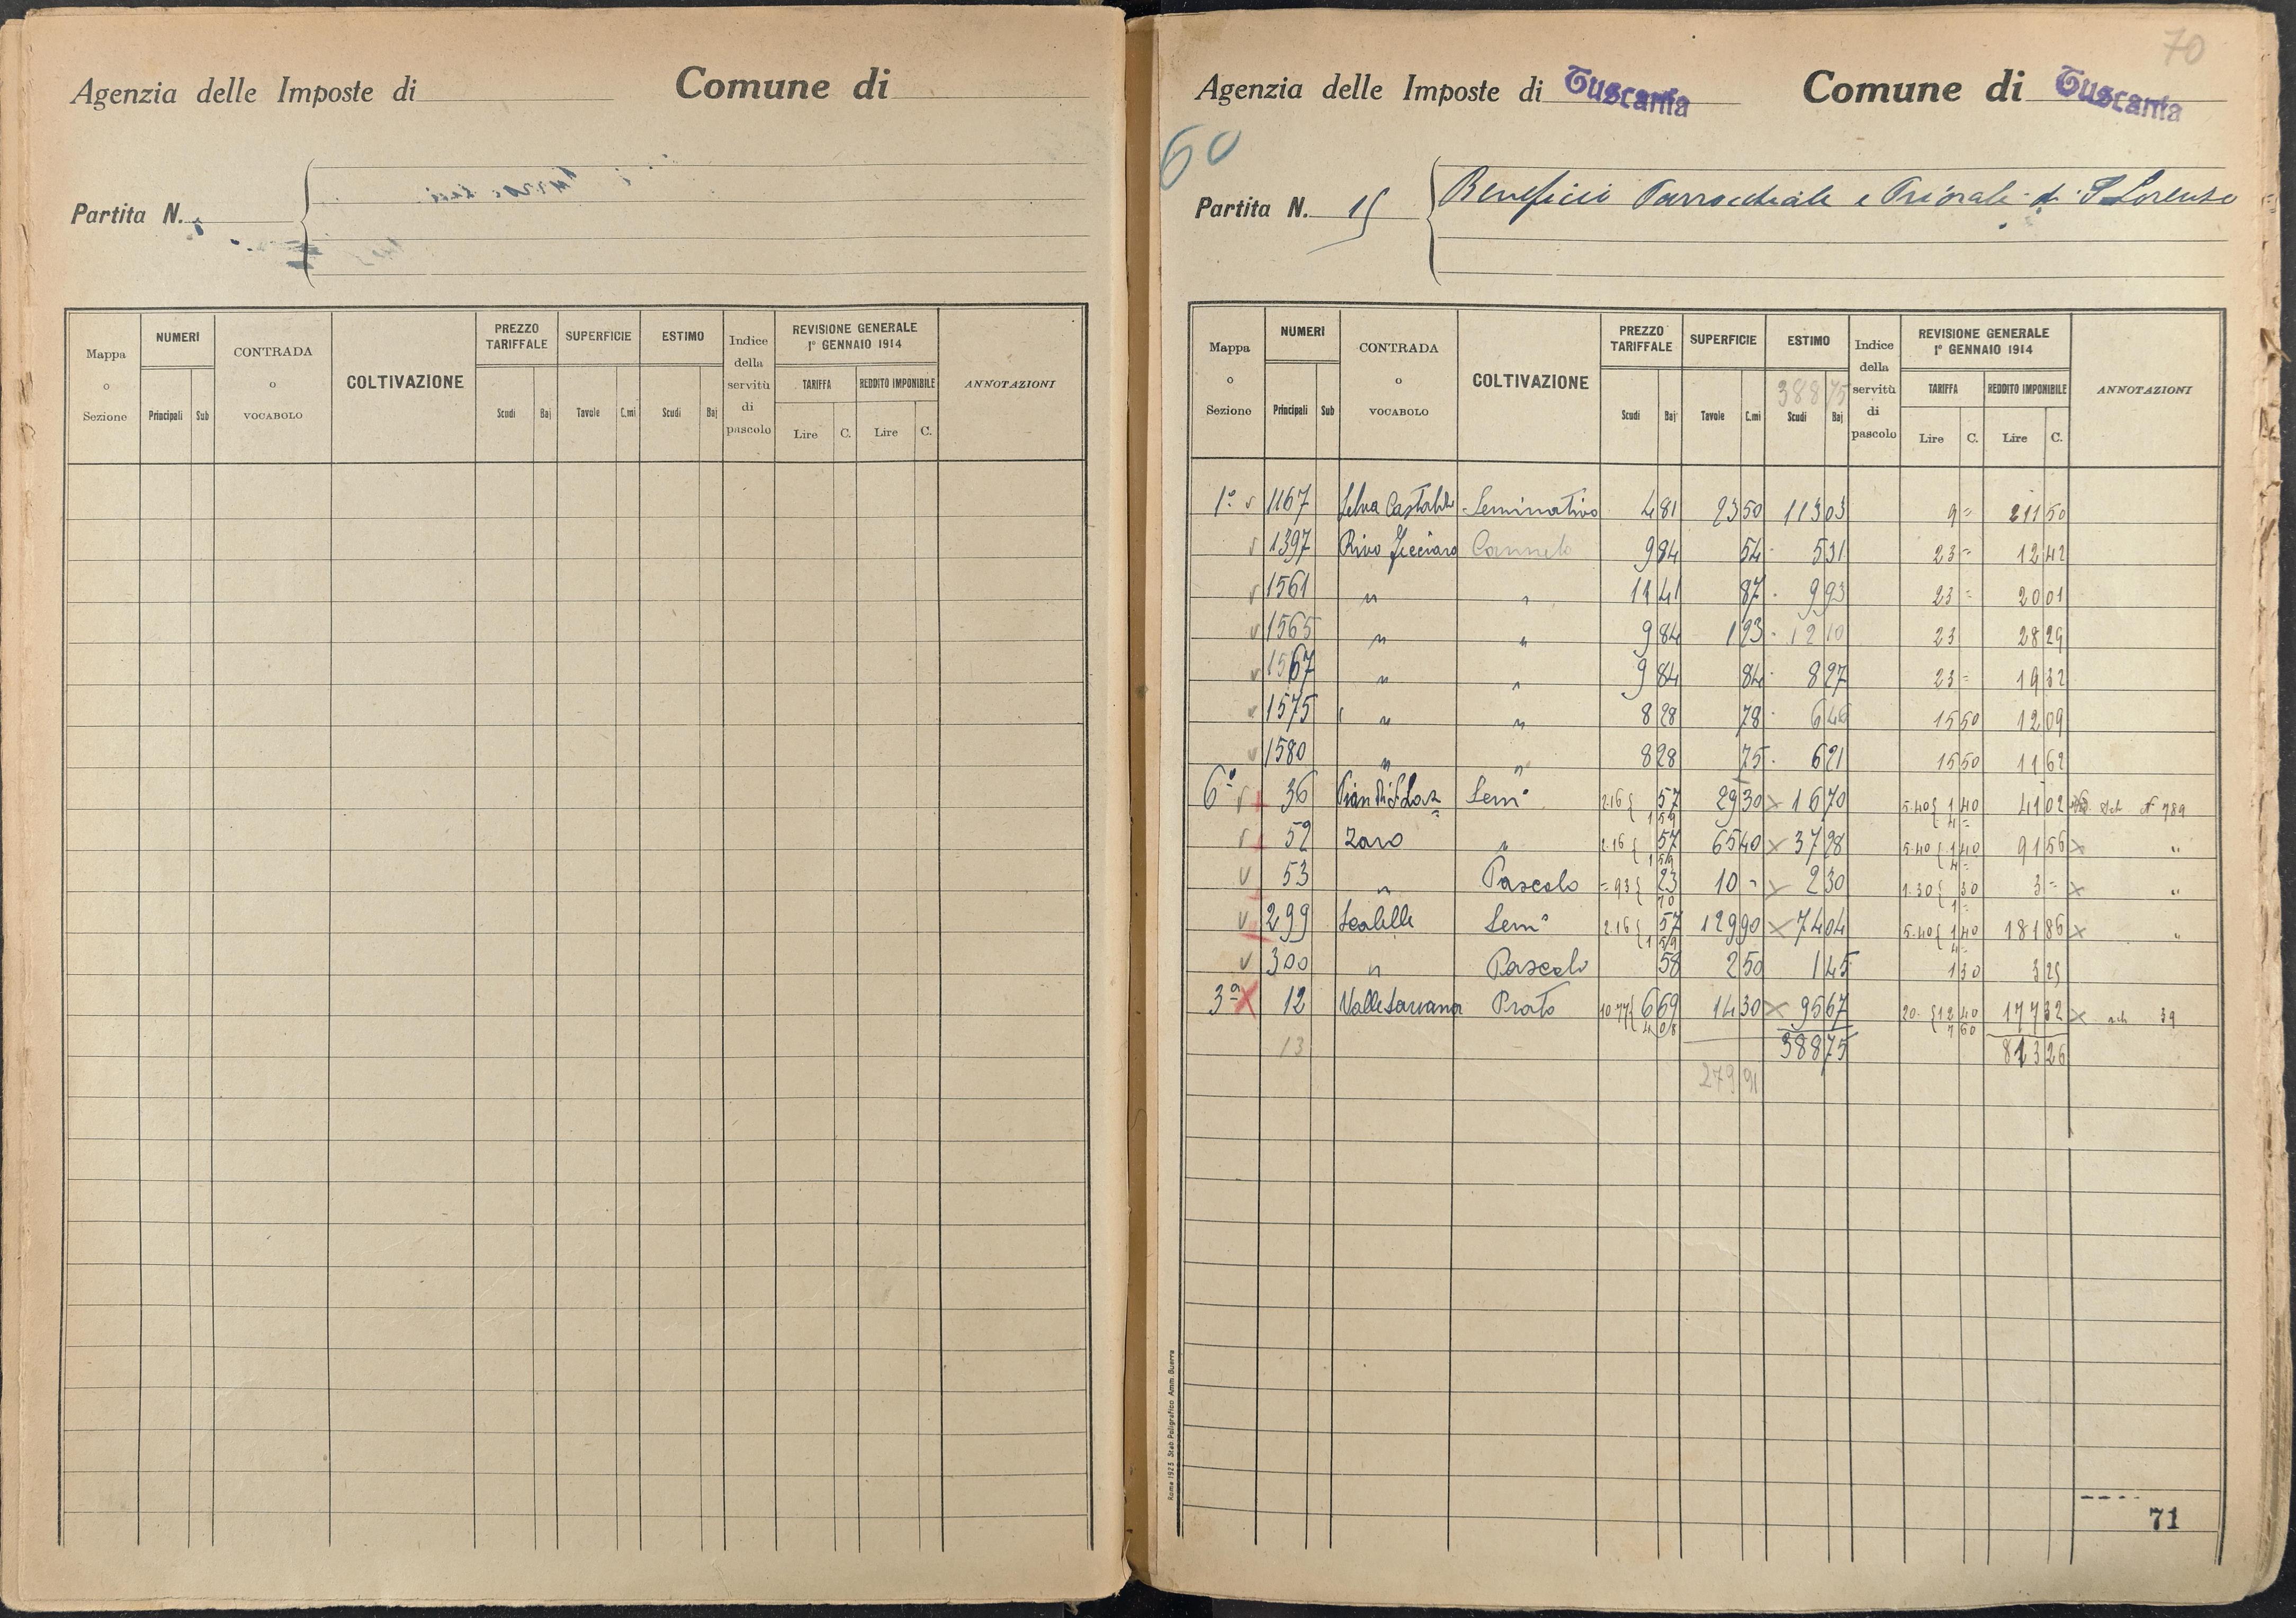 Agenzia delle Imposte di
Comune di
Partita N.
Mappa o Sezione
NUMERI
Principali Sub
CONTRADA o VOCABOLO
COLTIVAZIONE
PREZZO TARIFFALE
Scudi Baj
SUPERFICIE
Tavole C.mi
ESTIMO
Scudi Baj
Indice della servitù di pascolo
REVISIONE GENERALE 1° GENNAIO 1914
TARIFFA
Lire C.
REDDITO IMPONIBILE
Lire C.
ANNOTAZIONI
70
Agenzia delle Imposte di Tuscania
Comune di Tuscania
60
Partita N. 15
Beneficio Parrocchiale e Priorale di S Lorenzo
Mappa o Sezione
NUMERI
Principali Sub
CONTRADA o VOCABOLO
COLTIVAZIONE
PREZZO TARIFFALE
Scudi Baj
SUPERFICIE
Tavole C.mi
ESTIMO
38875
Scudi Baj
Indice della servitù di pascolo
REVISIONE GENERALE 1° GENNAIO 1914
TARIFFA
Lire C.
REDDITO IMPONIBILE
Lire C.
ANNOTAZIONI
1° v 1167 Selva Seminativo 4 81 23 50 113 03 9 = 211 50
v 1397 Rivo Canneto 9 84 54 · 5 31 23 = 12 42
v 1561 " " 11 41 87 · 9 93 23 = 20 01
v 1565 " " 9 84 1 23 · 12 10 23 28 29
v 1567 " " 9 84 84 · 8 27 23 = 19 32
v 1575 " " 8 28 78 · 6 46 15 50 12 09
v 1580 " " 8 28 75 · 6 21 15 50 11 62
6° v 36 Sem° 2.16 { 57 1 59 29 30 x 16 70 5.40 { 1 40 4 = 41 02 N 789
v 52 Zaro " 2.16 { 57 1 59 65 40 x 37 28 5.40 { 1 40 4 = 91 56 x "
v 53 " Pascolo = 93 { 23 70 10 - x 2 30 1.30 { 30 1 = 3 = x "
v 299 Scalelle Sem° 2.16 { 57 1 59 129 90 x 74 04 5.40 { 1 40 4 = 181 86 x "
v 300 " Pascolo 58 2 50 1 45 1 30 3 25
3ª x 12 Valle Prato 10.77 { 6 69 4 08 14 30 x 95 67 20. { 12 40 7 60 177 32 x 39
13 388 75 813 26
279 91
Roma 1923 Stab. Poligrafico Amm. Guerra
71